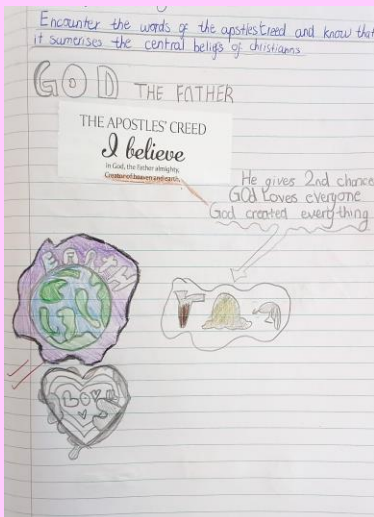 Encounter the words of the apostles creed and know that
it sumerises the central beliefs of christians
GOD THE FATHER
THE APOSTLES' CREED
I believe
in God, the Father almighty,
Creator of heaven and earth,
He gives 2nd chance
GOD Loves everyone
God created everything
EARTH
LOVE